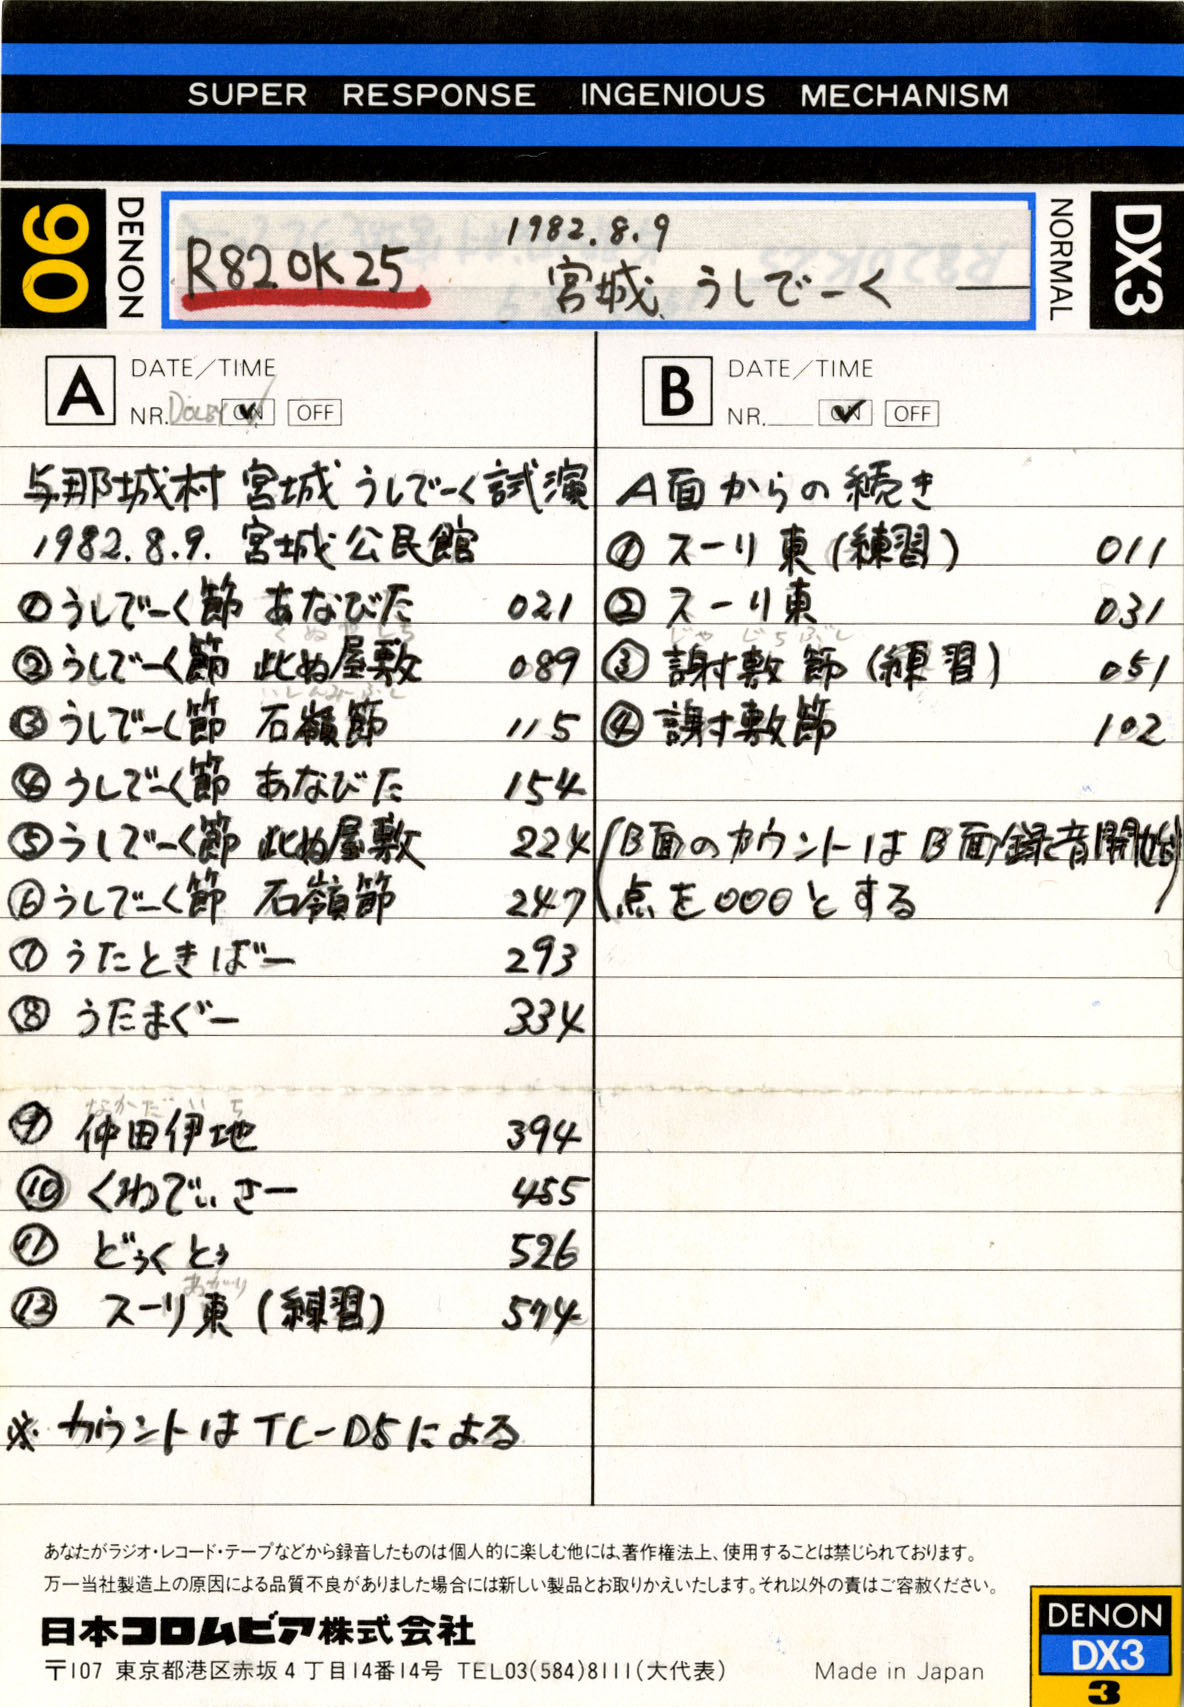 SUPER RESPONSE INGENIOUS MECHANISM
90
DENON
R82OK25
1982.8.9
宮城 うしでーく ―
NORMAL
DX3
A
DATE/TIME
NR. DOLBY ON OFF
与那城村 宮城 うしでーく試演
1982.8.9. 宮城公民館
① うしでーく節 あなびた 021
くぬやしち
② うしでーく節 此ぬ屋敷 089
いしんみーぶし
③ うしでーく節 石嶺節 115
④ うしでーく節 あなびた 154
⑤ うしでーく節 此ぬ屋敷 224
⑥ うしでーく節 石嶺節 247
⑦ うたときばー 293
⑧ うたまぐー 334
なかだいち
⑨ 仲田伊地 394
⑩ くわでぃさー 455
⑪ どぅくとぅ 526
あがり
⑫ スーリ東 (練習) 574
※ カウントはTC-D5による
B
DATE/TIME
NR. ON OFF
A面からの続き
① スーリ東 (練習) 011
② スーリ東 031
じゃじちぶし
③ 謝敷節 (練習) 051
④ 謝敷節 102
(B面のカウントはB面録音開始
点を000とする)
あなたがラジオ・レコード・テープなどから録音したものは個人的に楽しむ他には、著作権法上、使用することは禁じられております。
万一当社製造上の原因による品質不良がありました場合には新しい製品とお取りかえいたします。それ以外の責はご容赦ください。
日本コロムビア株式会社
〒107 東京都港区赤坂4丁目14番14号 TEL03(584)8111(大代表)
Made in Japan
DENON
DX3
3